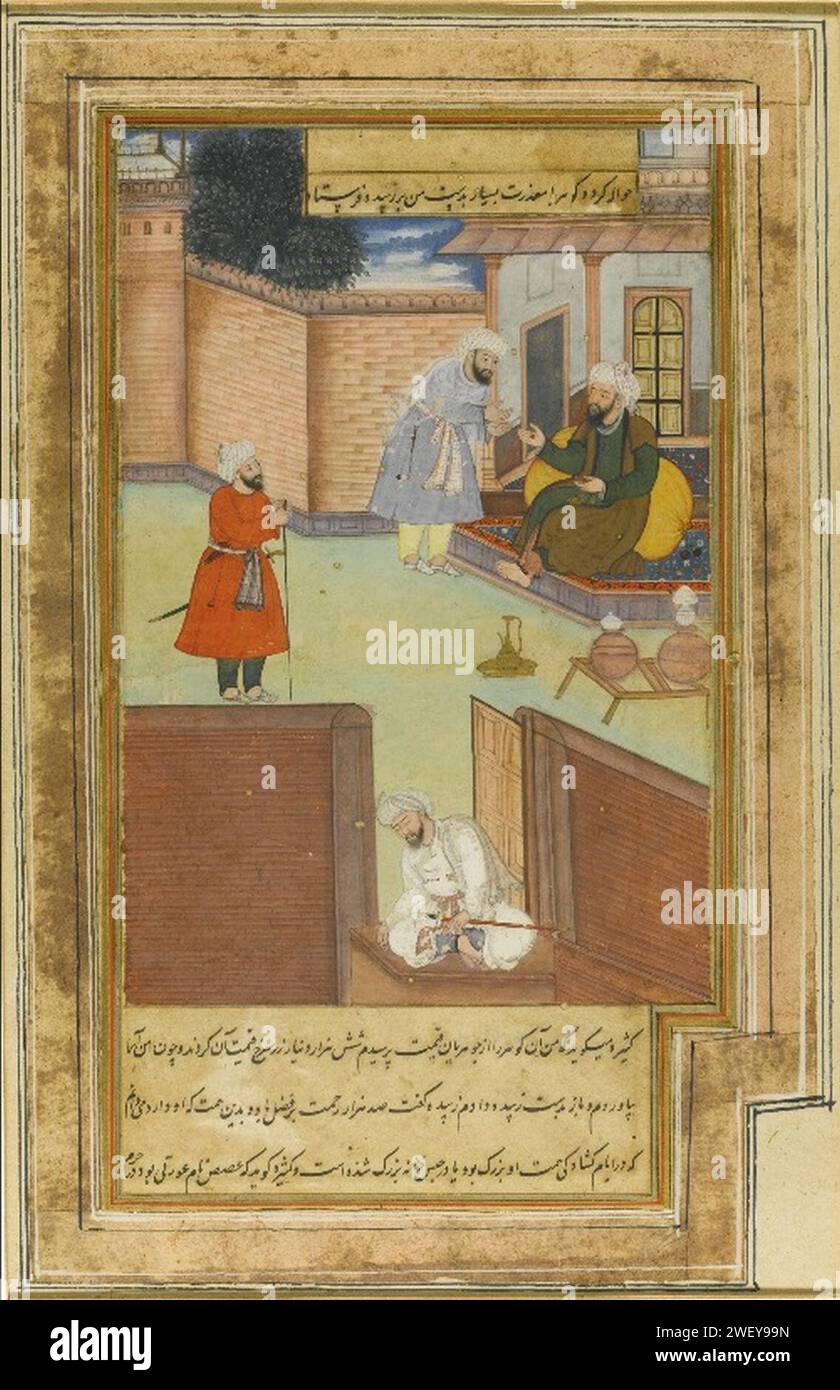 حواله کرد و گوهر با معذرت بسیار بدست من بر زبیده فرستاد
کثیره میگوید که من آن گوهر را از جوهریان قیمت پرسیدم شش هزار دینار زر سرخ قیمت آن کردند و چون من آنها
بیاوردم و باز بدست زبیده دادم زبیده گفت صد هزار رحمت بر فضل باد و بدین همت که او دارد می دانم
که در ایام کشادگی همت او بزرگ بود یا در حبس خانه بزرگ شده است و کثیره گوید که غصص نام عورتی بود در حرم
alamy
Image ID: 2WEY99N
www.alamy.com